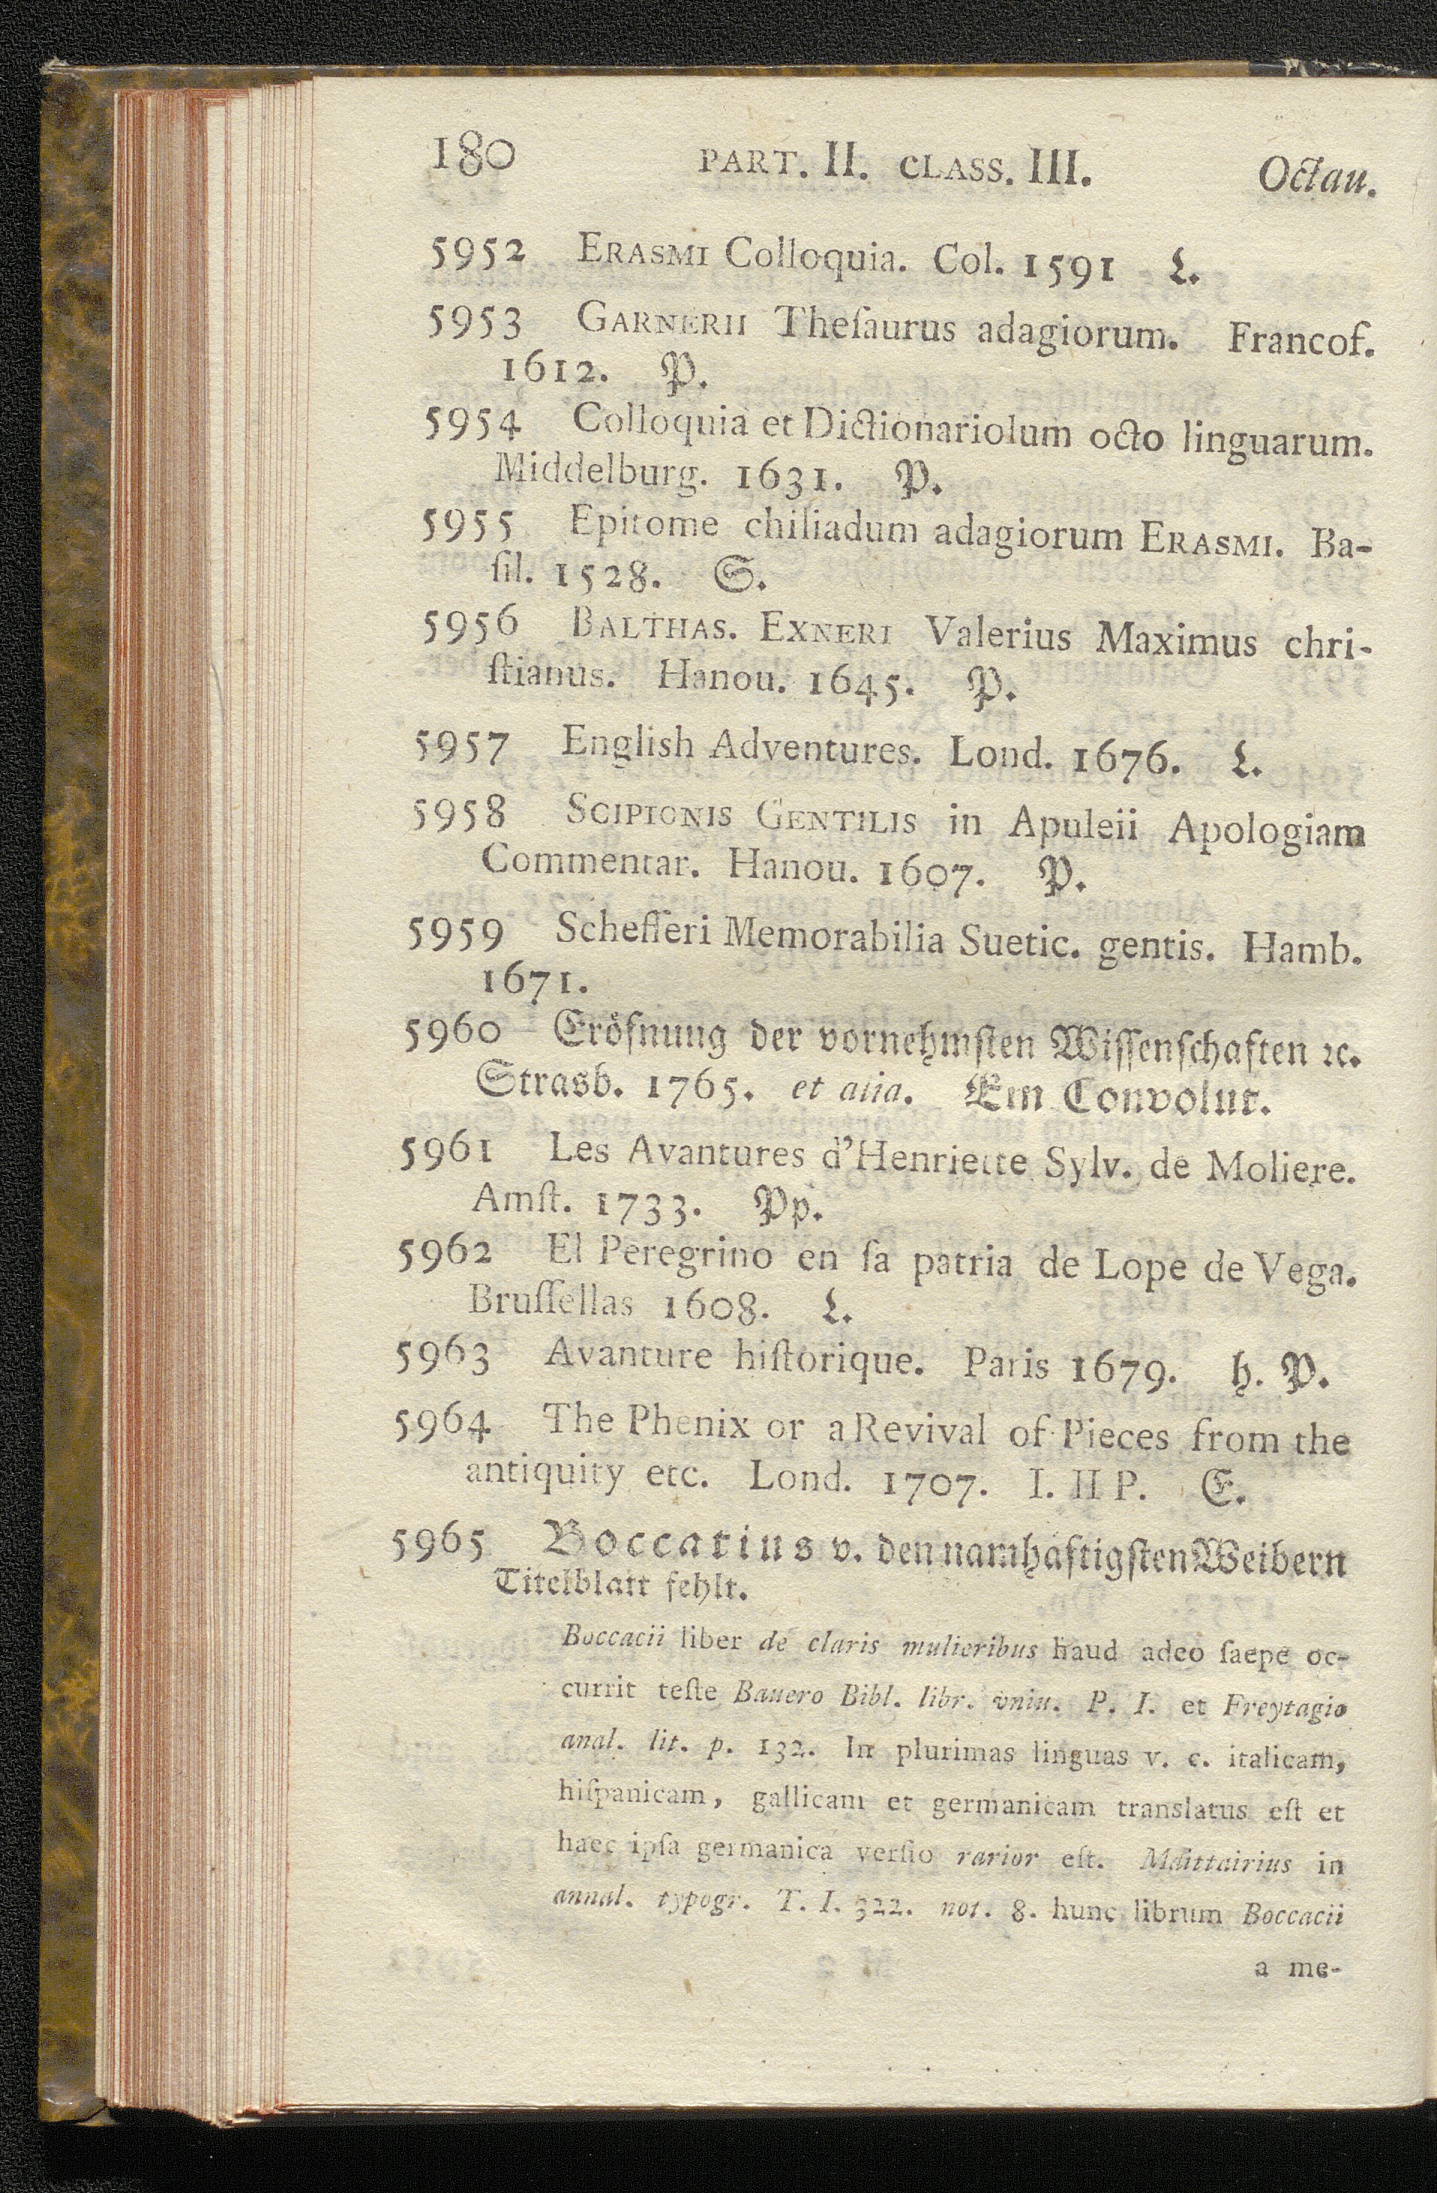 180 PART. II. CLASS. III. Octau.
5952 ERASMI Colloquia. Col. 1591 L.
5953 GARNERII Theſaurus adagiorum. Francof.
1612. P.
5954 Colloquia et Dictionariolum octo linguarum.
Middelburg. 1631. P.
5955 Epitome chiliadum adagiorum ERASMI. Ba-
ſil. 1528. S.
5956 BALTHAS. EXNERI Valerius Maximus chri-
ſtianus. Hanou. 1645. P.
5957 English Adventures. Lond. 1676. L.
5958 SCIPIONIS GENTILIS in Apuleii Apologiam
Commentar. Hanou. 1607. P.
5959 Schefferi Memorabilia Suetic. gentis. Hamb.
1671.
5960 Eröfnung der vornehmſten Wiſſenſchaften ꝛc.
Strasb. 1765. et alia. Ein Convolut.
5961 Les Avantures d'Henriette Sylv. de Moliere.
Amſt. 1733. Pp.
5962 El Peregrino en ſa patria de Lope de Vega.
Bruſſellas 1608. L.
5963 Avanture hiſtorique. Paris 1679. h. P.
5964 The Phenix or a Revival of Pieces from the
antiquity etc. Lond. 1707. I. II P. E.
5965 Boccatius v. den namhaftigſten Weibern
Titelblatt fehlt.
Boccacii liber de claris mulieribus haud adeo ſaepe oc-
currit teſte Bauero Bibl. libr. vniu. P. I. et Freytagio
anal. lit. p. 132. In plurimas linguas v. c. italicam,
hiſpanicam, gallicam et germanicam translatus eſt et
haec ipſa germanica verſio rarior eſt. Maittairius in
annal. typogr. T. I. 322. not. 8. hunc librum Boccacii
a me-